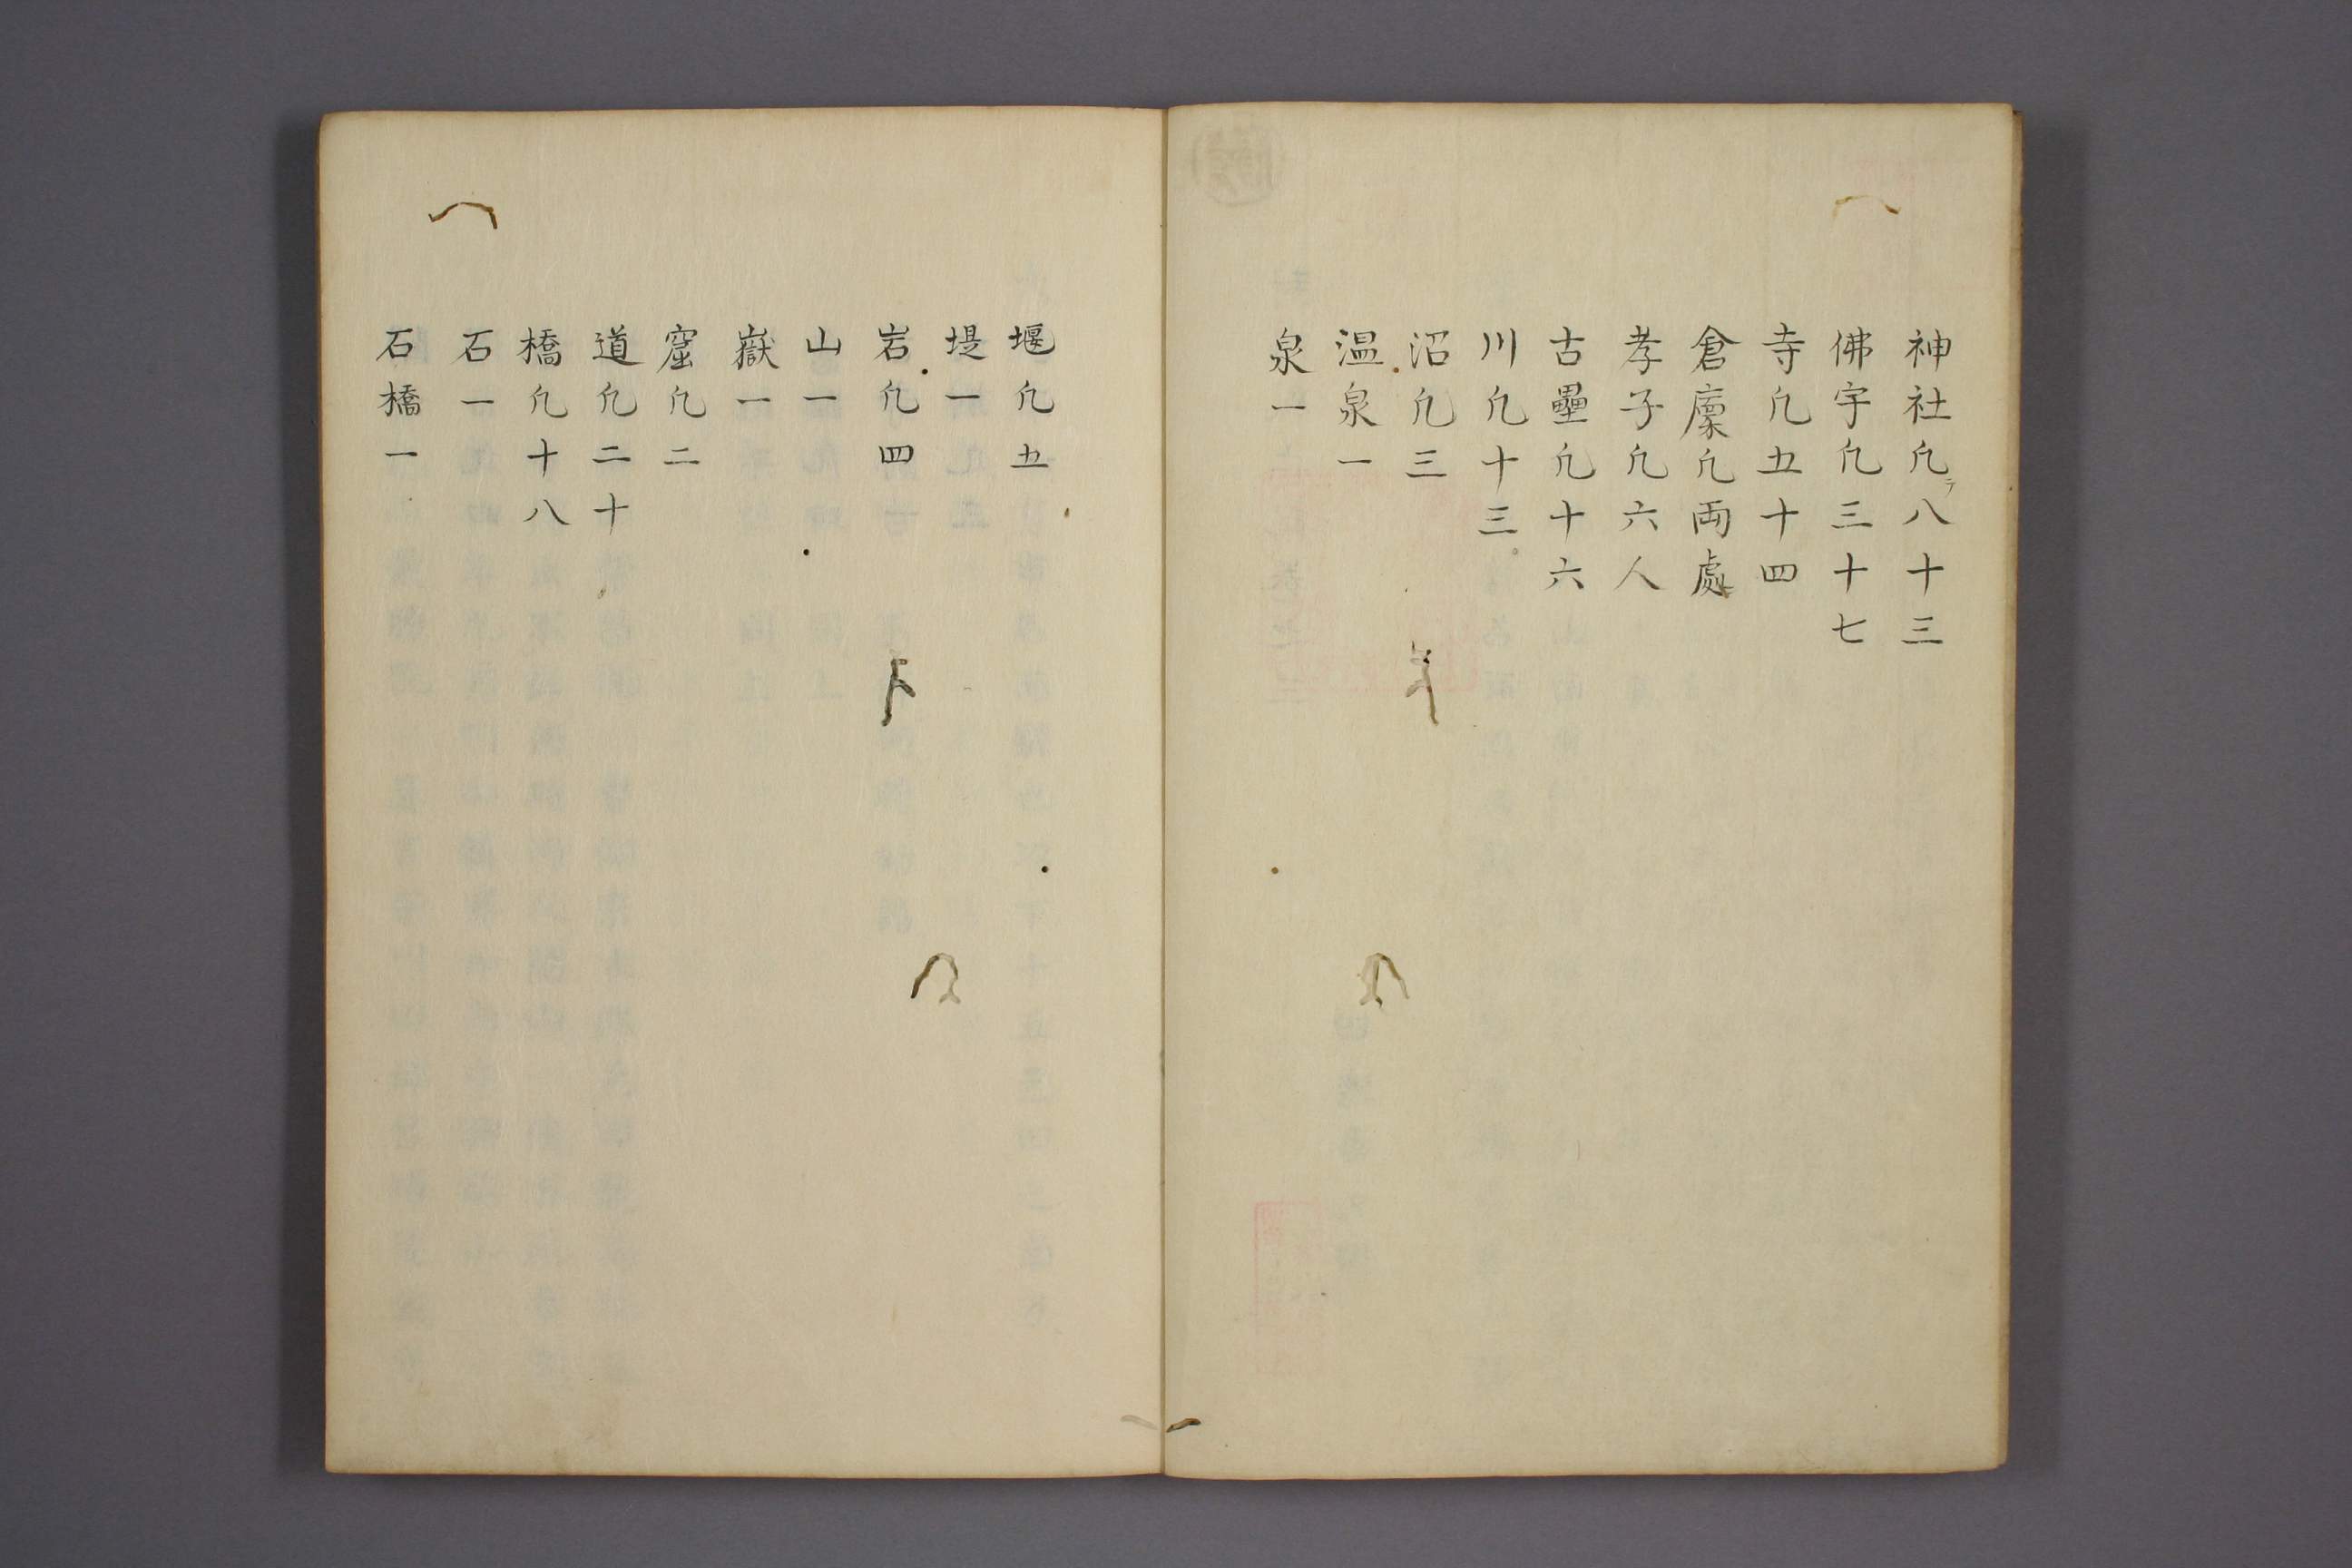 神社凢テ八十三
佛宇凢三十七
寺凢五十四
倉廩凢両處
孝子凢六人
古壘凢十六
川凢十三
沼凢三
温泉一
泉一
堰凢五
堤一
岩凢四
山一
嶽一
窟凢二
道凢二十
橋凢十八
石一
石橋一